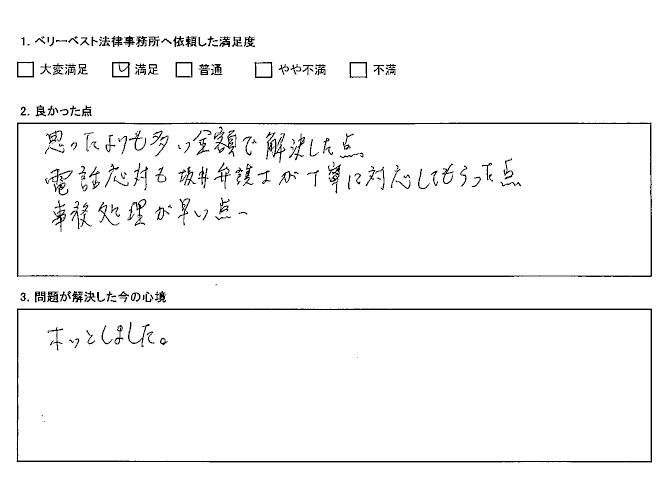 1. ベリーベスト法律事務所へ依頼した満足度
□ 大変満足 ☑ 満足 □ 普通 □ やや不満 □ 不満
2. 良かった点
思ったよりも多い金額で解決した点
電話応対も坂井弁護士が丁寧に対応してもらった点
事務処理が早い点。
3. 問題が解決した今の心境
ホッとしました。